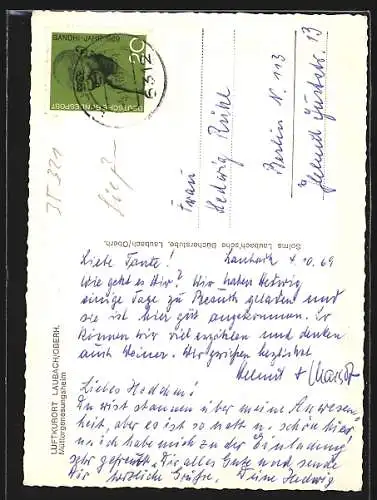 Liebe Tante! Laubach 4.10.69
Wie geht es Dir? Wir haben Hedwig
einige Tage zu Besuch geladen und
sie ist hier gut angekommen. Wir
können wir viel erzählen und denken
auch Deiner. Wir grüßen herzlichst
Helmut + Margot
Liebes
Du wirst staunen über meine Anwesen
heit, aber es ist so nett u. schön hier
u. ich habe mich zu der Einladung
sehr gefreut. Dir alles Gute und sende
Dir herzliche Grüße. Deine Hedwig
Frau
Hedwig
Berlin N. 113
13
LUFTKURORT LAUBACH/OBERH.
Müttergenesungsheim
Solms Laubach'sche Bücherstube, Laubach/Oberh.
DEUTSCHE BUNDESPOST
20
6312